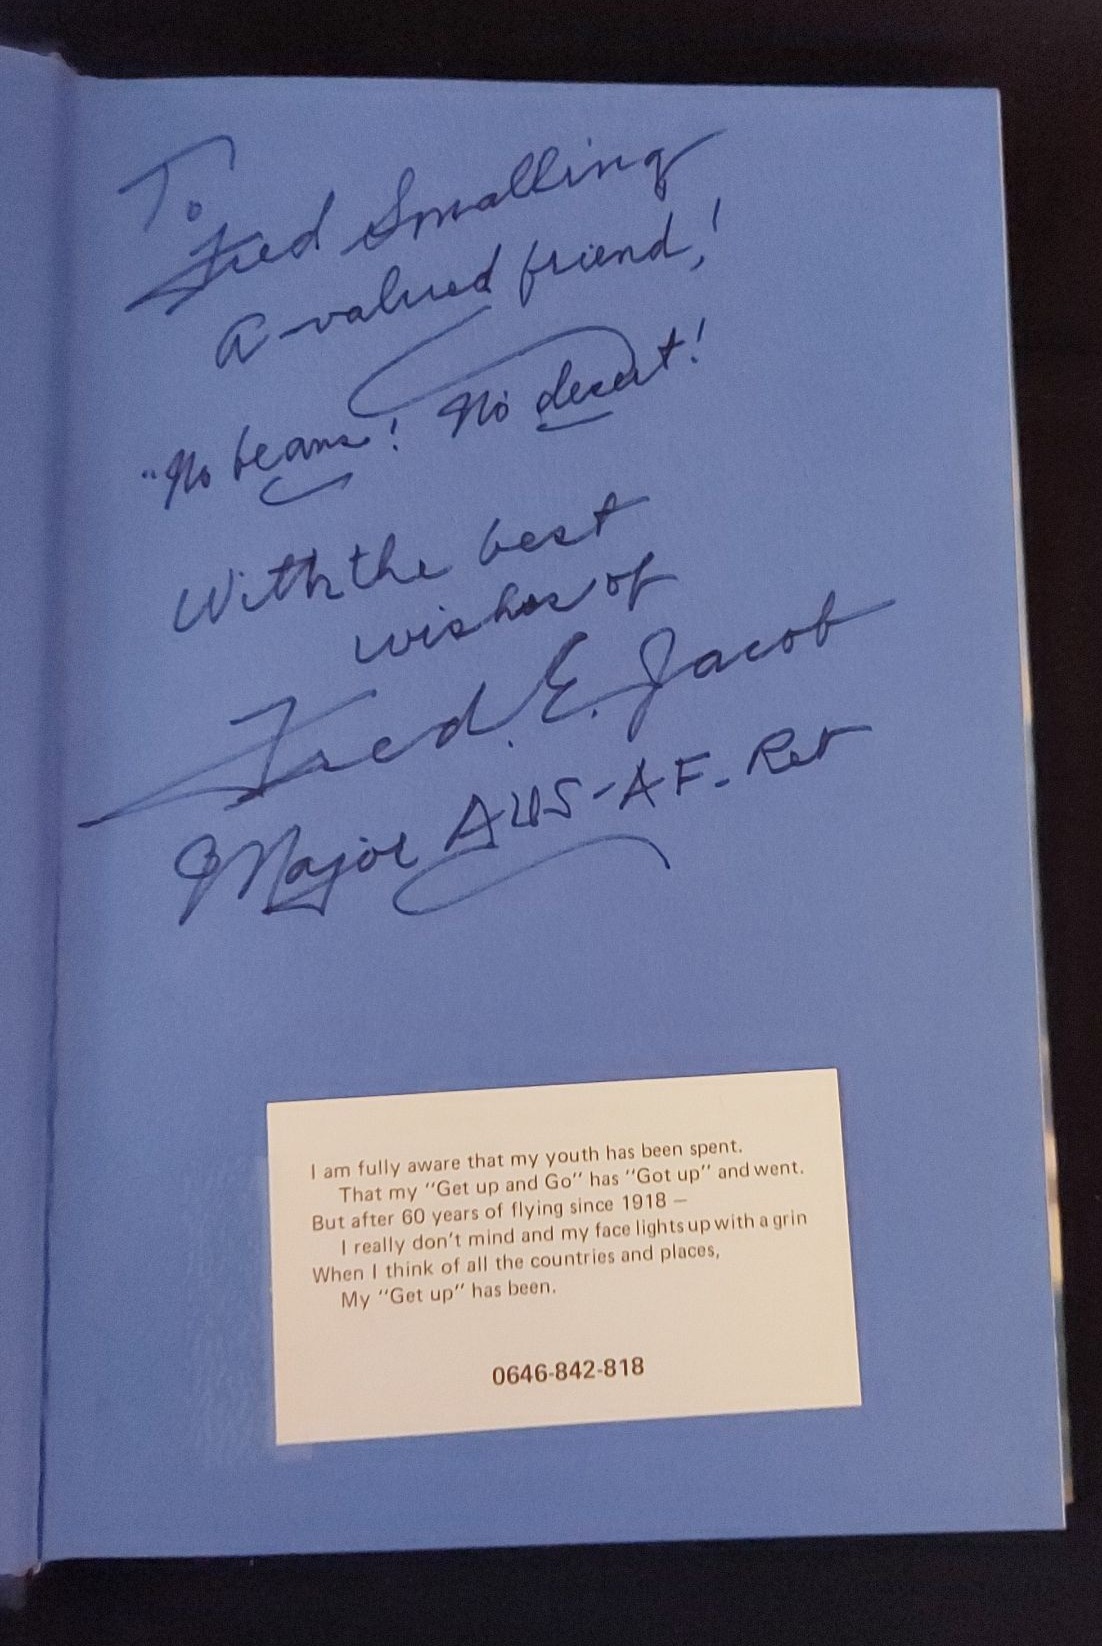 To
Fred Smalling
A valued friend,!
"No beans! No desert!
With the best
wishes of
Fred. E. Jacob
Major AUS-AF. Ret
I am fully aware that my youth has been spent.
That my "Get up and Go" has "Got up" and went.
But after 60 years of flying since 1918 —
I really don't mind and my face lights up with a grin
When I think of all the countries and places,
My "Get up" has been.
0646-842-818